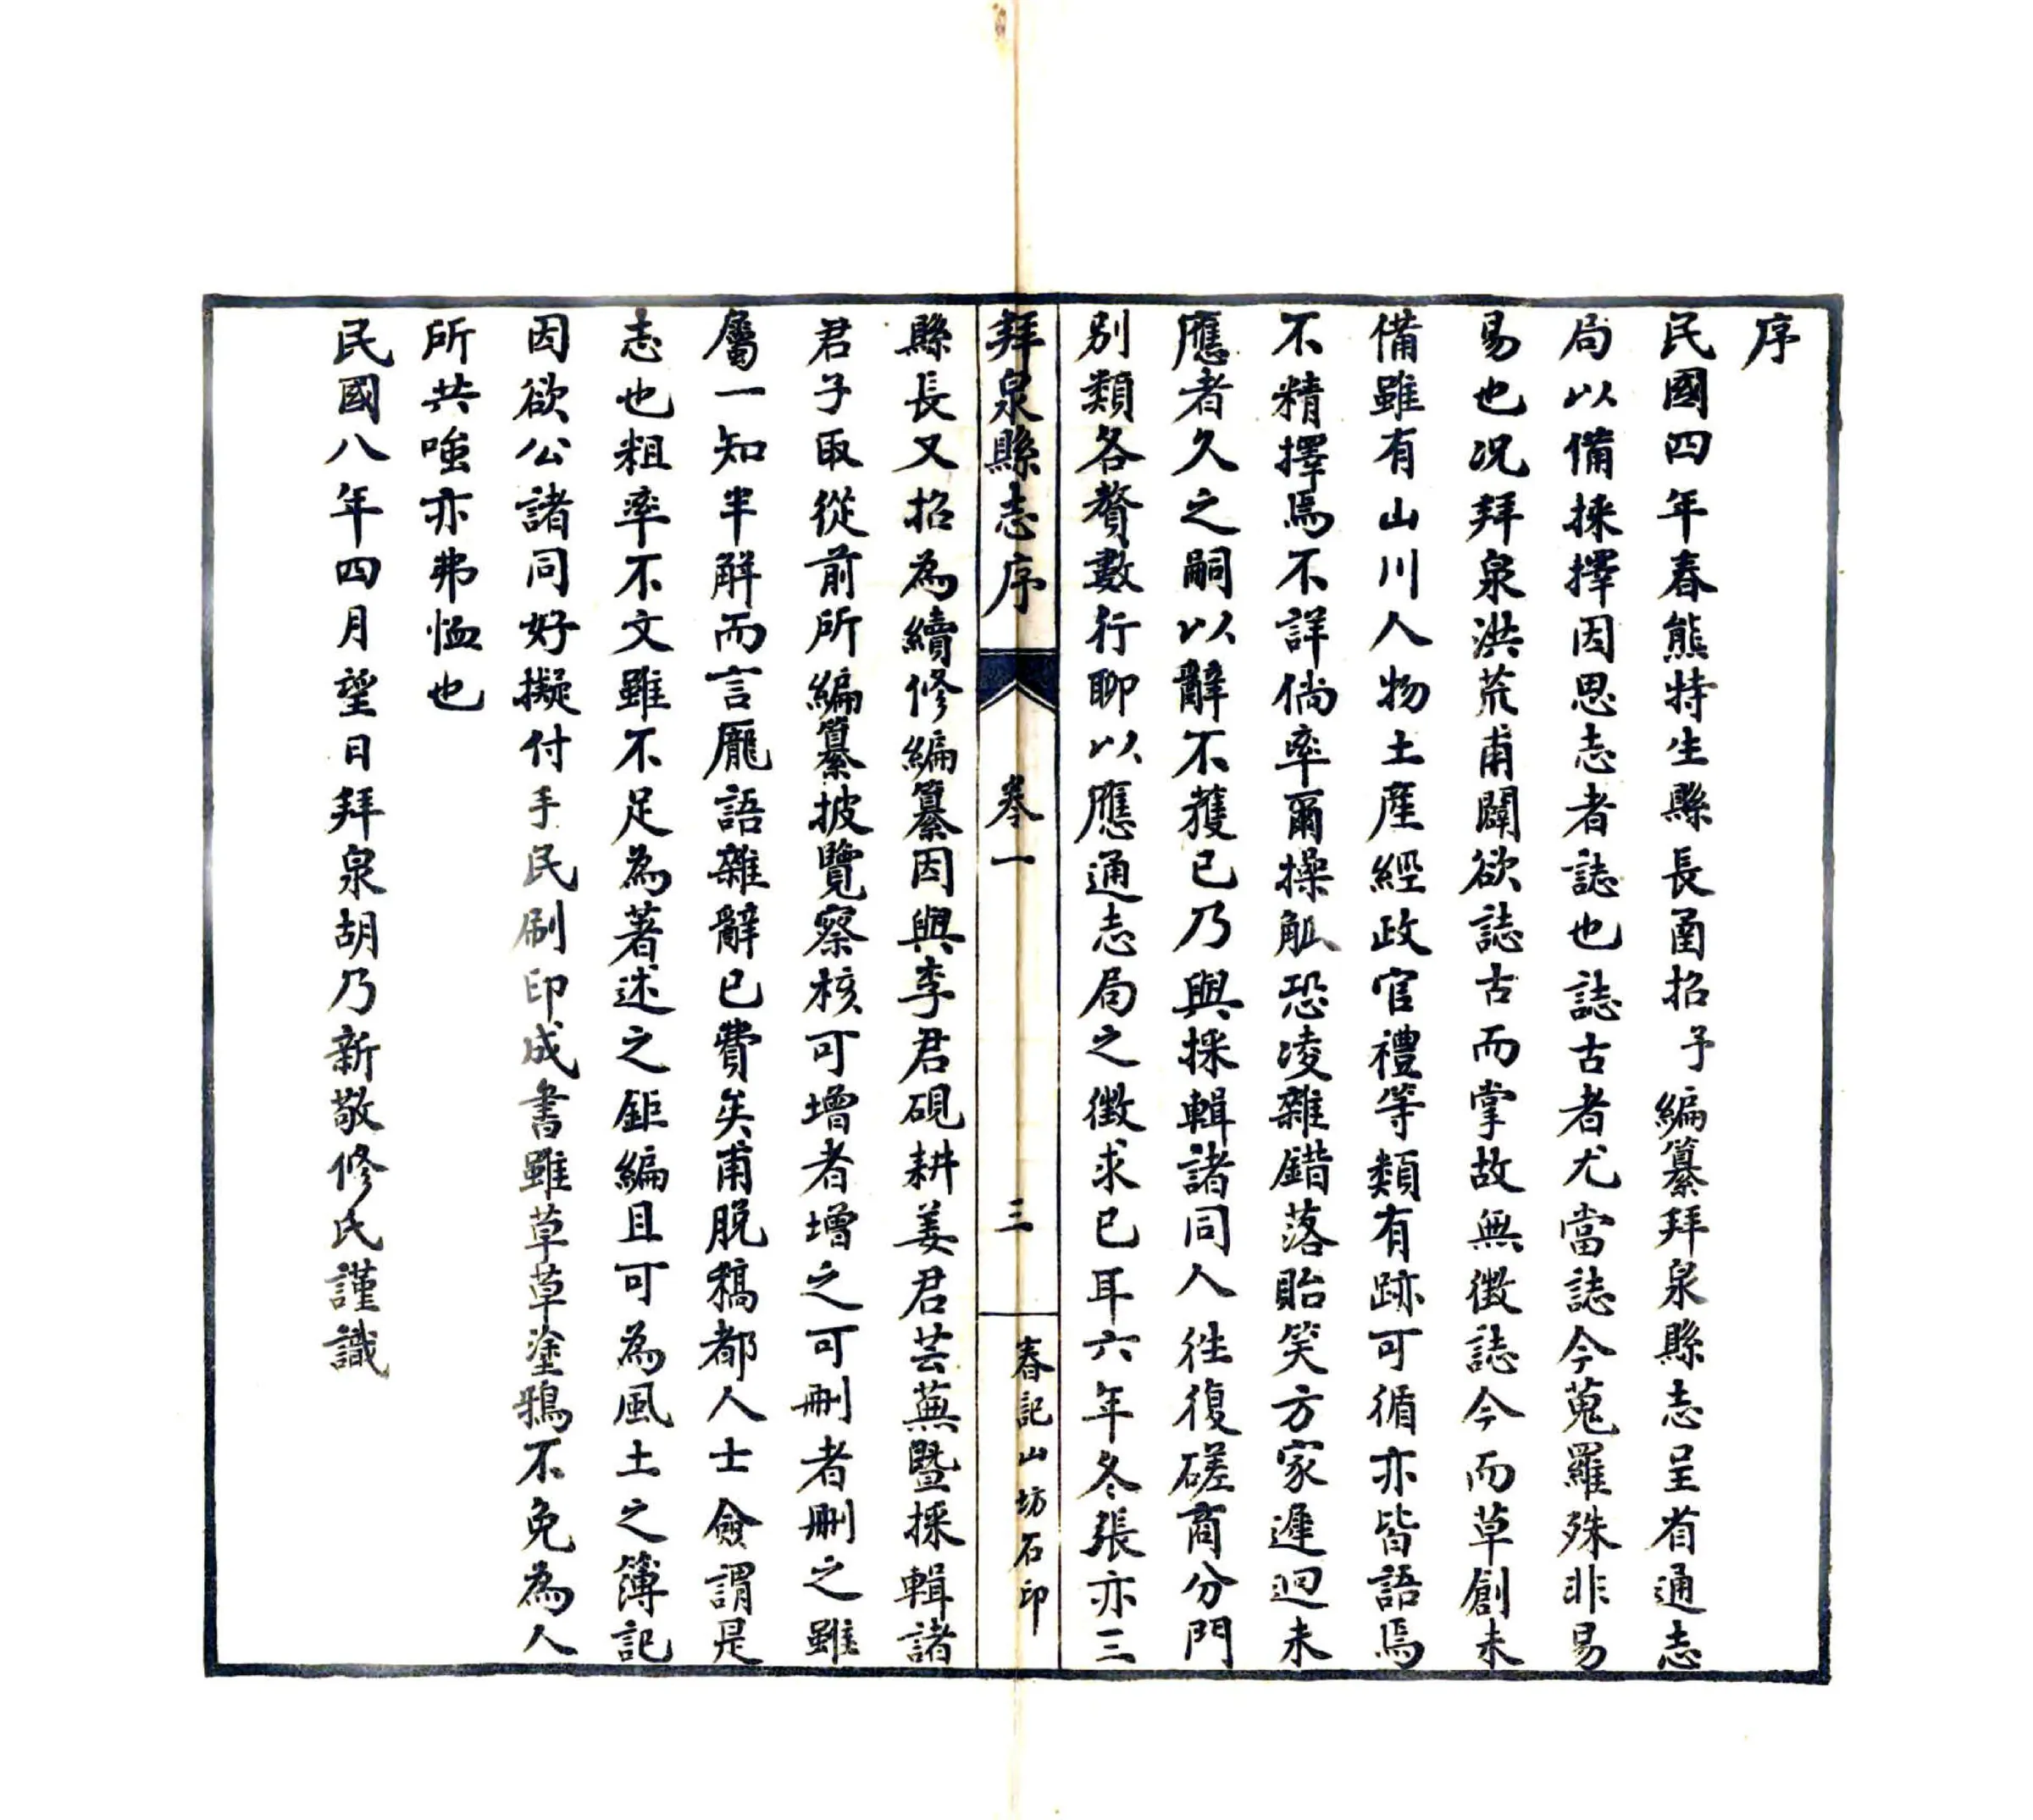 序
民國四年春熊特生縣長函招予編纂拜泉縣志呈省通志
局以備採擇因思志者誌也誌古者尤當誌今蒐羅殊非易
易也况拜泉洪荒甫闢欲誌古而掌故無徵誌今而草創未
備雖有山川人物土產經政官禮等類有跡可循亦皆語焉
不精擇焉不詳倘率爾操觚恐凌雜錯落貽笑方家遲迴未
應者久之嗣以辭不獲已乃與採輯諸同人往復磋商分門
別類各贅數行聊以應通志局之徵求已耳六年冬張亦三
拜泉縣志序 卷一 三 春記山坊石印
縣長又招為續修編纂因與李君硯耕姜君芸蕪暨採輯諸
君子取從前所編纂披覽察核可增者增之可刪者刪之雖
屬一知半解而言龎語雜辭已費矣甫脫稿都人士僉謂是
志也粗率不文雖不足為著述之鉅編且可為風土之簿記
因欲公諸同好擬付手民刷印成書雖草草塗鴉不免為人
所共嗤亦弗恤也
民國八年四月望日拜泉胡乃新敬修氏謹識